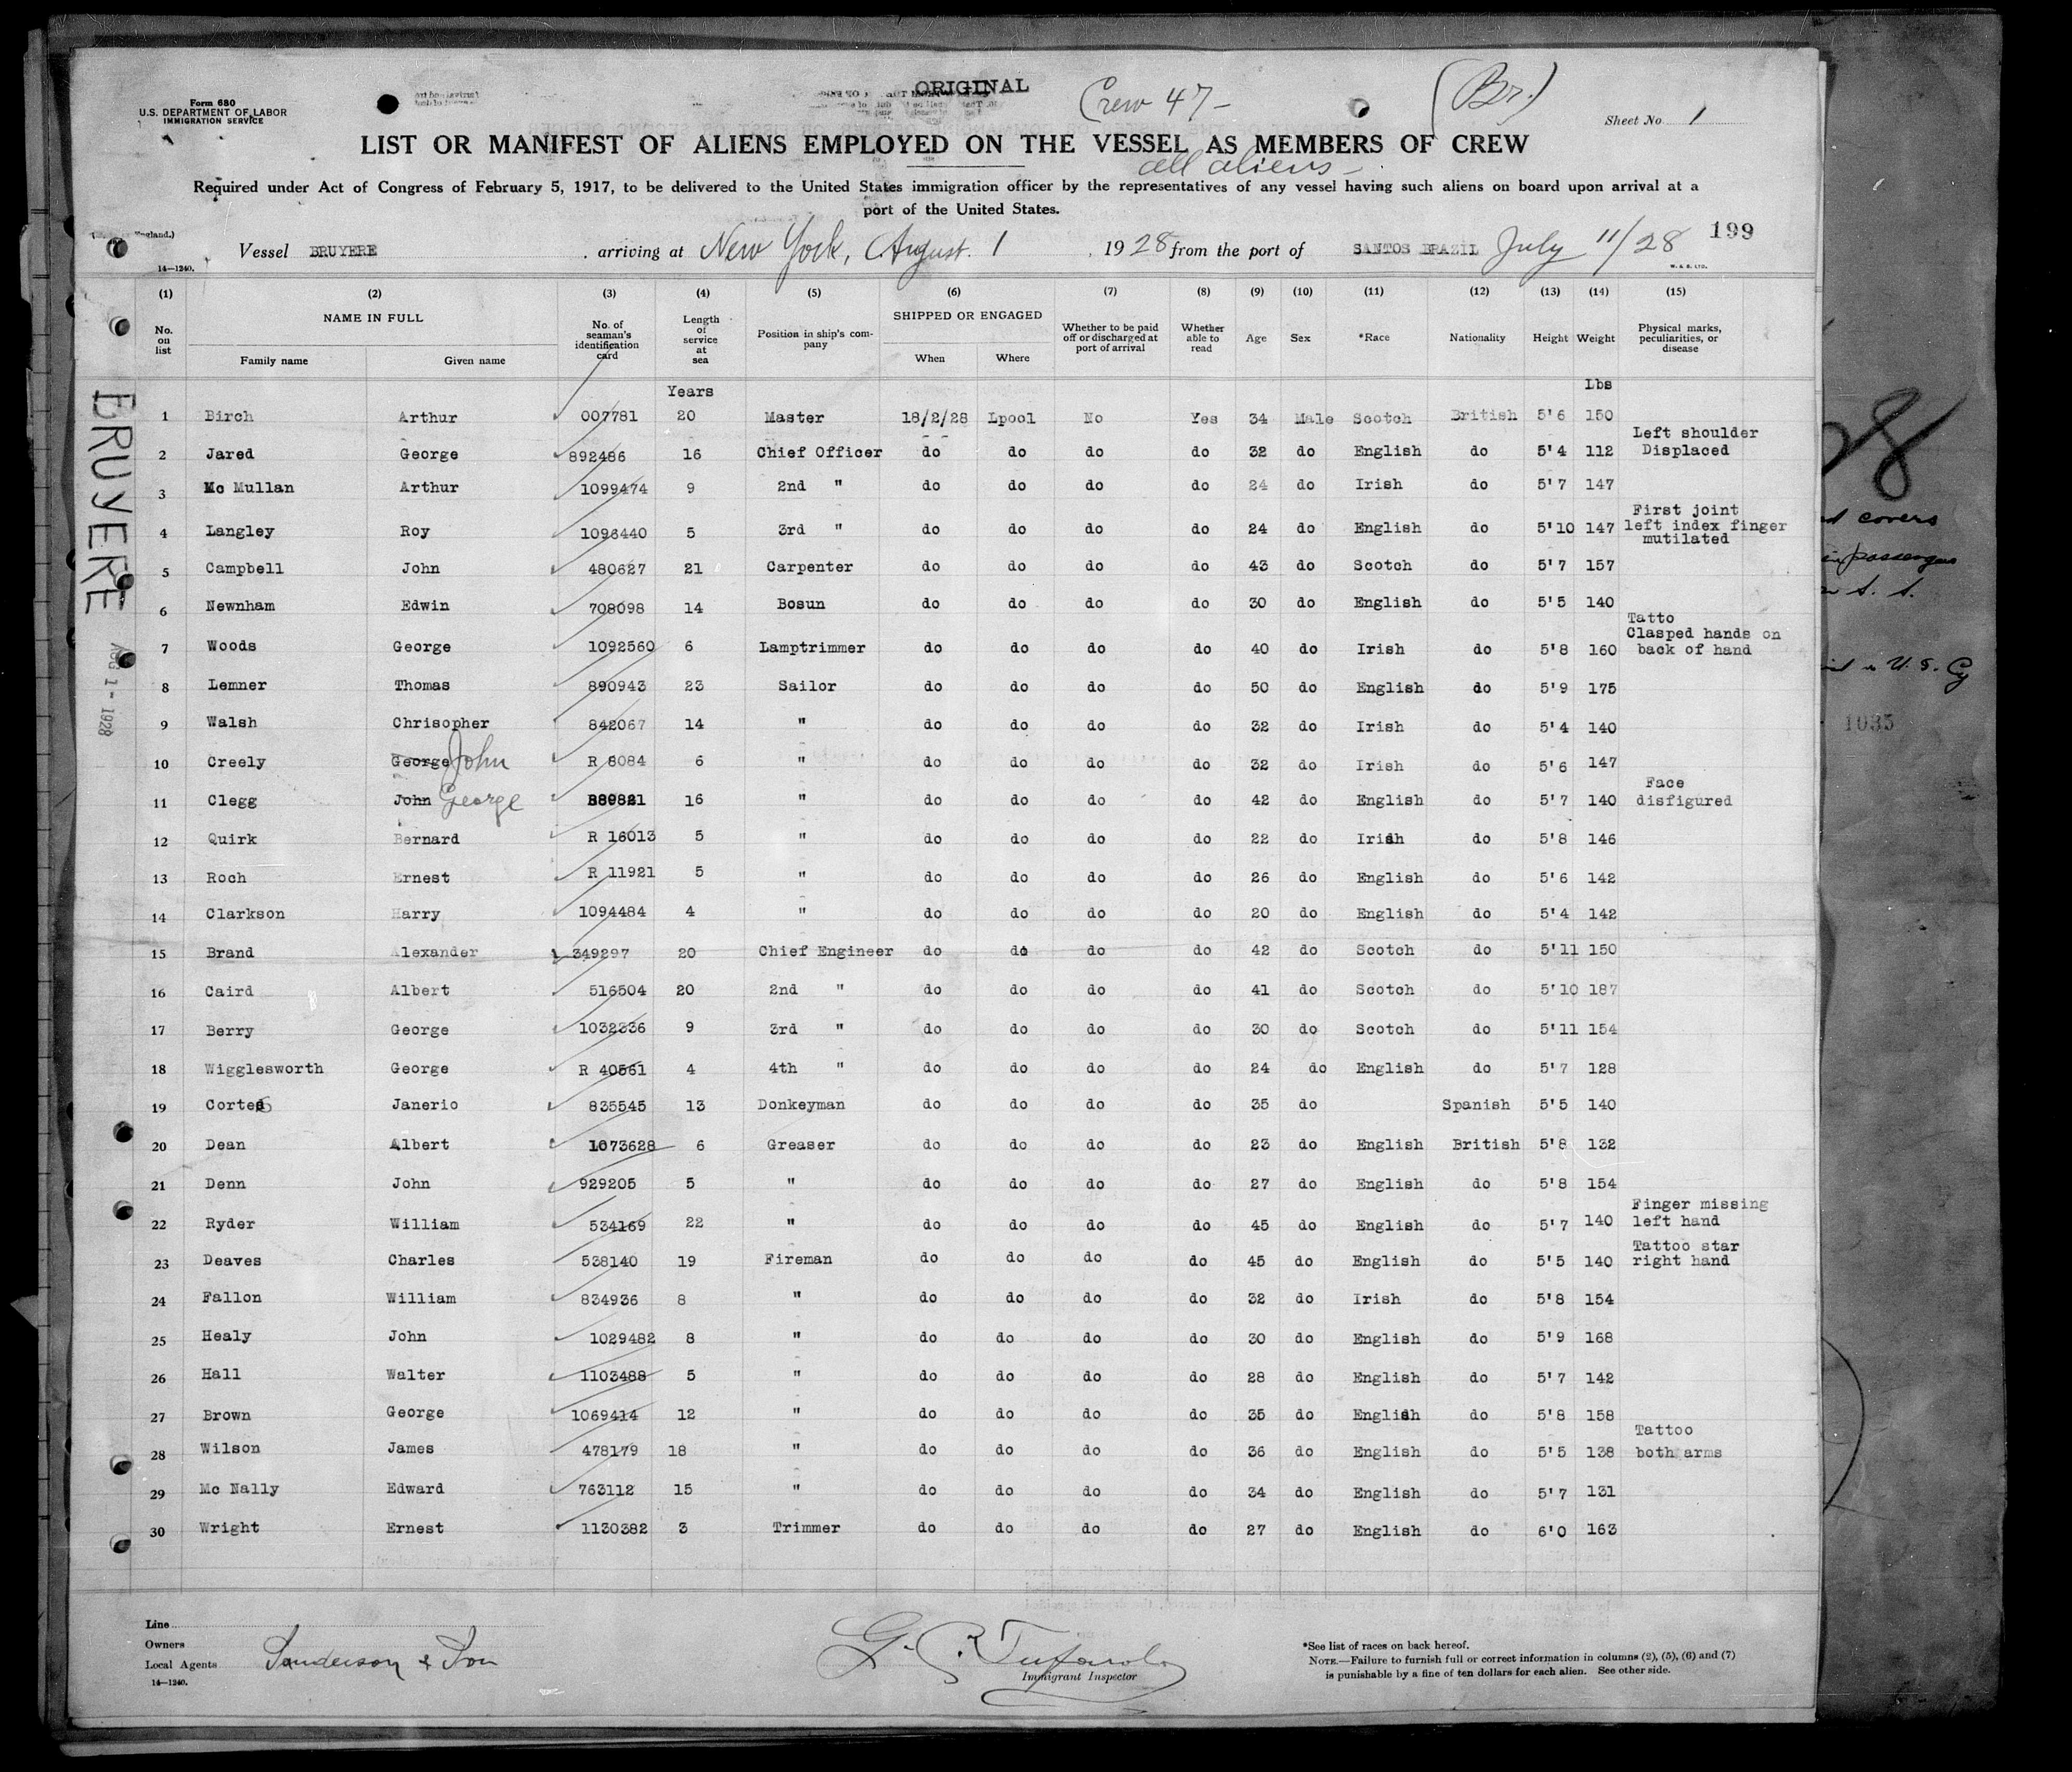 ORIGINAL
Crew 47-
(Br.)
Form 680
U.S. DEPARTMENT OF LABOR
IMMIGRATION SERVICE
Sheet No. 1
LIST OR MANIFEST OF ALIENS EMPLOYED ON THE VESSEL AS MEMBERS OF CREW
all aliens-
Required under Act of Congress of February 5, 1917, to be delivered to the United States immigration officer by the representatives of any vessel having such aliens on board upon arrival at a
port of the United States.
199
Vessel BRUYERE arriving at New York, August. 1, 1928 from the port of SANTOS BRAZIL July 11/28
14—1240.
W. & S. LTD.
(1) (2) (3) (4) (5) (6) (7) (8) (9) (10) (11) (12) (13) (14) (15)
No. on list NAME IN FULL Family name Given name No. of seaman's identification card Length of service at sea Position in ship's company SHIPPED OR ENGAGED When Where Whether to be paid off or discharged at port of arrival Whether able to read Age Sex *Race Nationality Height Weight Physical marks, peculiarities, or disease
Years Lbs
1 Birch Arthur 007781 20 Master 18/2/28 Lpool No Yes 34 Male Scotch British 5'6 150
2 Jared George 892486 16 Chief Officer do do do do 32 do English do 5'4 112 Left shoulder Displaced
3 Mc Mullan Arthur 1099474 9 2nd " do do do do 24 do Irish do 5'7 147
4 Langley Roy 1096440 5 3rd " do do do do 24 do English do 5'10 147 First joint left index finger mutilated
5 Campbell John 480627 21 Carpenter do do do do 43 do Scotch do 5'7 157
6 Newnham Edwin 708098 14 Bosun do do do do 30 do English do 5'5 140
7 Woods George 1092560 6 Lamptrimmer do do do do 40 do Irish do 5'8 160 Tatto Clasped hands on back of hand
8 Lemner Thomas 890943 23 Sailor do do do do 50 do English do 5'9 175
9 Walsh Chrisopher 842067 14 " do do do do 32 do Irish do 5'4 140
10 Creely George John R 8084 6 " do do do do 32 do Irish do 5'6 147
11 Clegg John George 889821 16 " do do do do 42 do English do 5'7 140 Face disfigured
12 Quirk Bernard R 16013 5 " do do do do 22 do Irish do 5'8 146
13 Roch Ernest R 11921 5 " do do do do 26 do English do 5'6 142
14 Clarkson Harry 1094484 4 " do do do do 20 do English do 5'4 142
15 Brand Alexander 349297 20 Chief Engineer do do do do 42 do Scotch do 5'11 150
16 Caird Albert 516504 20 2nd " do do do do 41 do Scotch do 5'10 187
17 Berry George 1032336 9 3rd " do do do do 30 do Scotch do 5'11 154
18 Wigglesworth George R 40561 4 4th " do do do do 24 do English do 5'7 128
19 Cortes Janerio 835545 13 Donkeyman do do do do 35 do Spanish 5'5 140
20 Dean Albert 1073628 6 Greaser do do do do 23 do English British 5'8 132
21 Denn John 929205 5 " do do do do 27 do English do 5'8 154
22 Ryder William 534169 22 " do do do do 45 do English do 5'7 140 Finger missing left hand
23 Deaves Charles 538140 19 Fireman do do do do 45 do English do 5'5 140 Tattoo star right hand
24 Fallon William 834936 8 " do do do do 32 do Irish do 5'8 154
25 Healy John 1029482 8 " do do do do 30 do English do 5'9 168
26 Hall Walter 1103488 5 " do do do do 28 do English do 5'7 142
27 Brown George 1069414 12 " do do do do 35 do English do 5'8 158
28 Wilson James 478179 18 " do do do do 36 do English do 5'5 138 Tattoo both arms
29 Mc Nally Edward 763112 15 " do do do do 34 do English do 5'7 131
30 Wright Ernest 1130382 3 Trimmer do do do do 27 do English do 6'0 163
BRUYERE
AUG 1 - 1928
Line
Owners
Local Agents Sanderson & Son
14—1240.
Immigrant Inspector
*See list of races on back hereof.
NOTE.—Failure to furnish full or correct information in columns (2), (5), (6) and (7)
is punishable by a fine of ten dollars for each alien. See other side.
covers
passengers
S. S.
U. S. Cy
1035